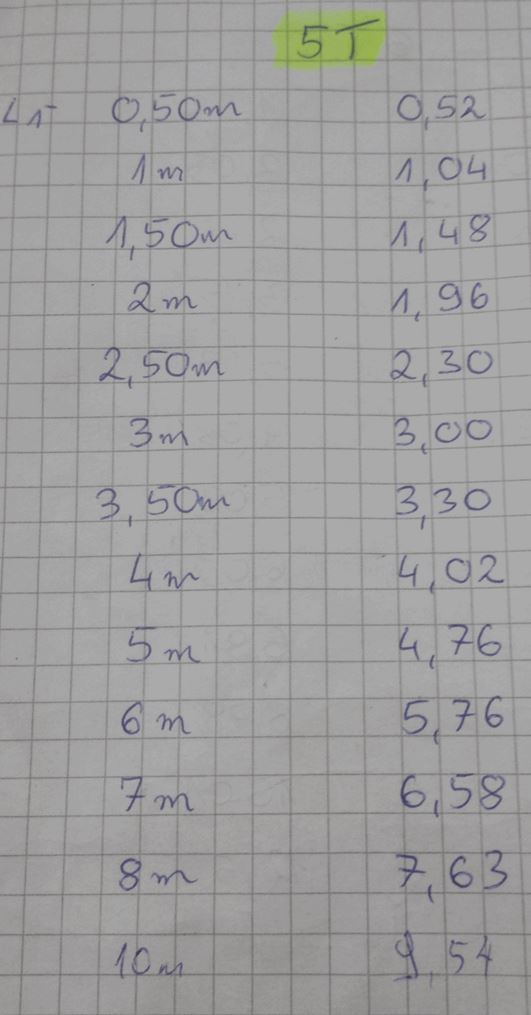 5T
0,50m 0,52
1m 1,04
1,50m 1,48
2m 1,96
2,50m 2,30
3m 3,00
3,50m 3,30
4m 4,02
5m 4,76
6m 5,76
7m 6,58
8m 7,63
10m 9,54